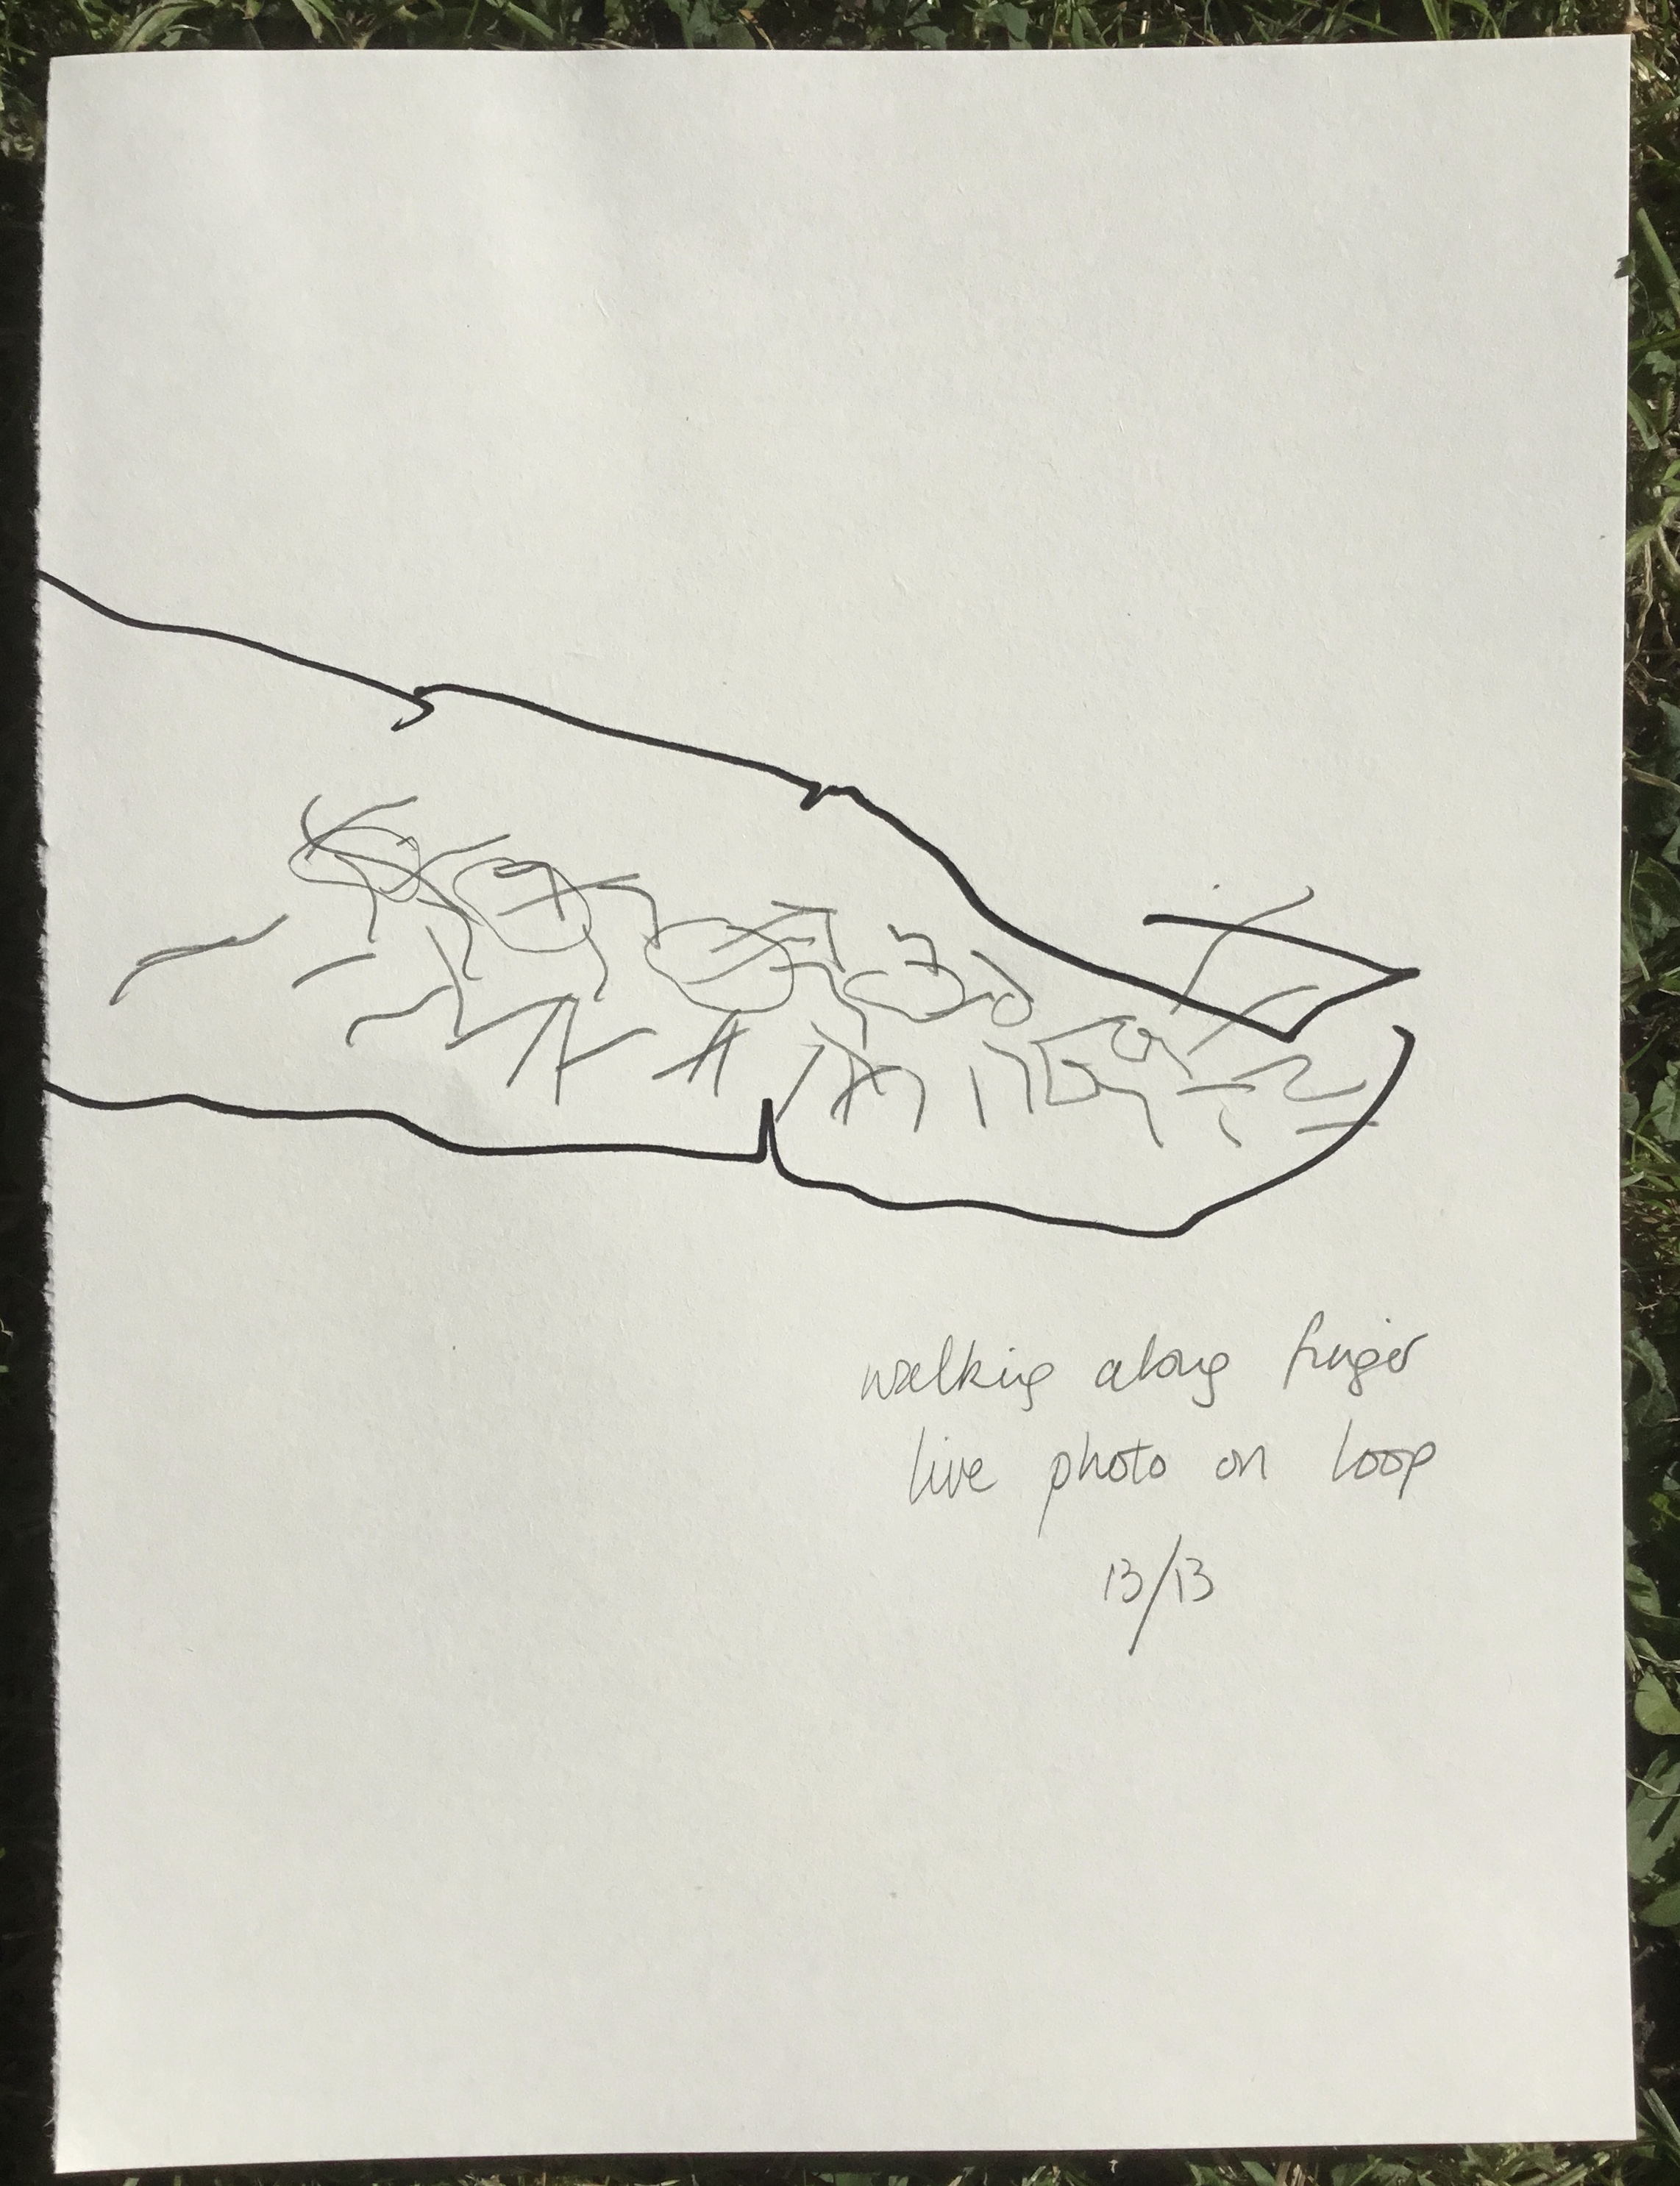 walking along finger
live photo on loop
13/13